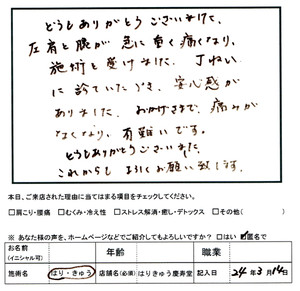 どうもありがとうございました。
左肩と腰が急に重く痛くなり、
施術を受けました。丁ねい
に診ていただき、安心感が
ありました。おかげさまで、痛みが
なくなり、有難いです。
どうもありがとうございました。
これからもよろしくお願い致します。
本日、ご来店された理由に当てはまる項目をチェックしてください。
□肩こり・腰痛 □むくみ・冷え性 □ストレス解消・癒し・デトックス □その他( )
※ あなた様の声を、ホームページなどでご紹介してもよろしいですか? □はい ☑匿名で
お名前(イニシャル可) 年齢 職業
施術名 はり・きゅう 店舗名(必須) はりきゅう慶寿堂 記入日 24年3月14日